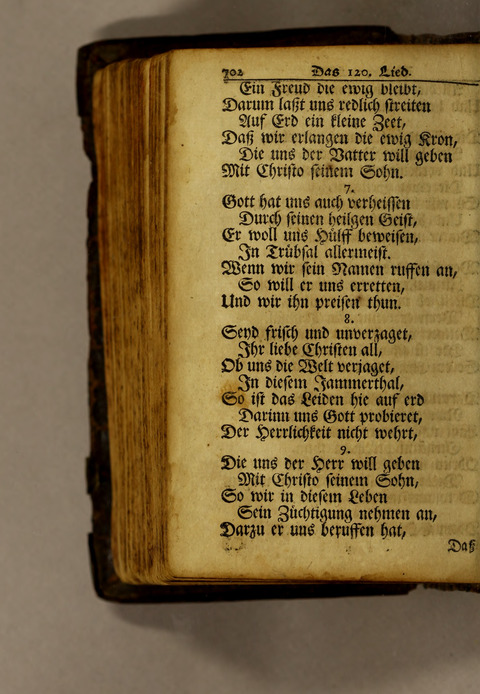 702 Das 120. Lied.
Ein Freud die ewig bleibt,
Darum laßt uns redlich streiten
Auf Erd ein kleine Zeet,
Daß wir erlangen die ewig Kron,
Die uns der Vatter will geben
Mit Christo seinem Sohn.
7.
Gott hat uns auch verheissen
Durch seinen heilgen Geist,
Er woll uns Hülff beweisen,
In Trübsal allermeist.
Wenn wir sein Namen ruffen an,
So will er uns erretten,
Und wir ihn preisen thun.
8.
Seyd frisch und unverzaget,
Ihr liebe Christen all,
Ob uns die Welt verjaget,
In diesem Jammerthal,
So ist das Leiden hie auf erd
Darinn uns Gott probieret,
Der Herrlichkeit nicht wehrt,
9.
Die uns der Herr will geben
Mit Christo seinem Sohn,
So wir in diesem Leben
Sein Züchtigung nehmen an,
Darzu er uns beruffen hat,
Daß